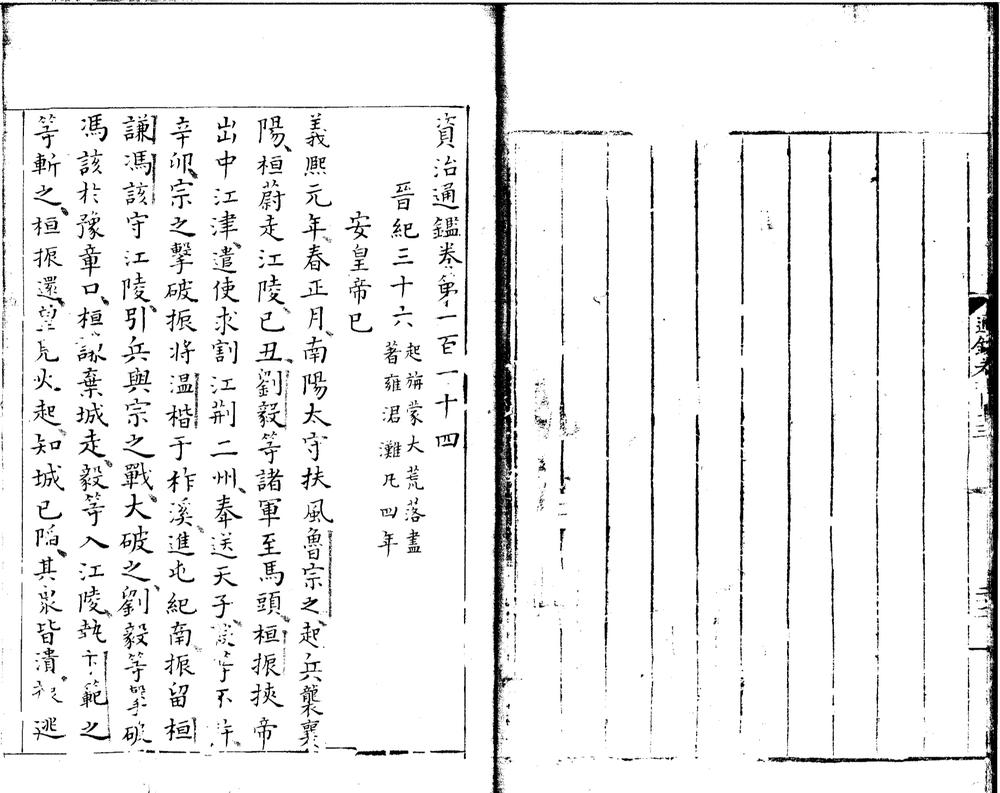 通鑑卷
資治通鑑卷第一百一十四
晉紀三十六
起旃蒙大荒落盡
著雍涒灘凡四年
安皇帝巳
義熙元年春正月南陽太守扶風魯宗之起兵襲襄
陽桓蔚走江陵己丑劉毅等諸軍至馬頭桓振挾帝
出屯江津遣使求割江荆二州奉送天子毅等不許
辛卯宗之擊破振將温楷于柞溪進屯紀南振留桓
謙馮該守江陵引兵與宗之戰大破之劉毅等擊破
馮該於豫章口桓謙棄城走毅等入江陵執卞範之
等斬之桓振還望見火起知城已陷其衆皆潰振逃